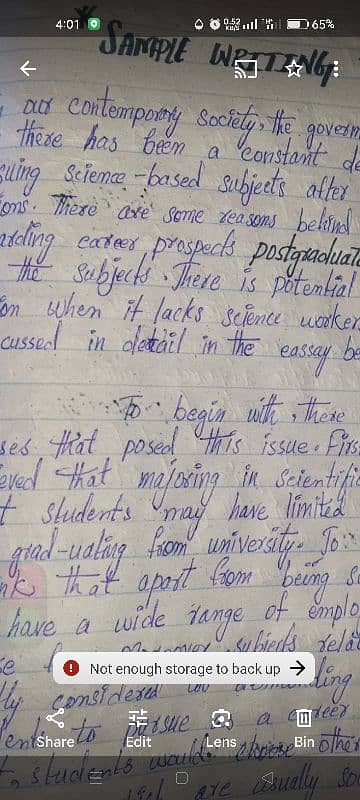 4:01 0.52 KB/S 65%
SAMPLE WRITING,
our contemporary society, the govern
there has been a constant de
suing science-based subjects after
ions. There are some reasons behind
arding career prospects postgraduate
the subjects. There is potential
on when it lacks science worker
cussed in detail in the eassay be
To begin with, there
ses that posed this issue. Firs
eved that majoring in scientific
t students may have limited
grad-uating from university. To
nk that apart from being s
have a wide range of emplo
subjects relat
Not enough storage to back up →
lly considered
Share Edit Lens Bin
to pursue as a career
students would choose other
are usually so